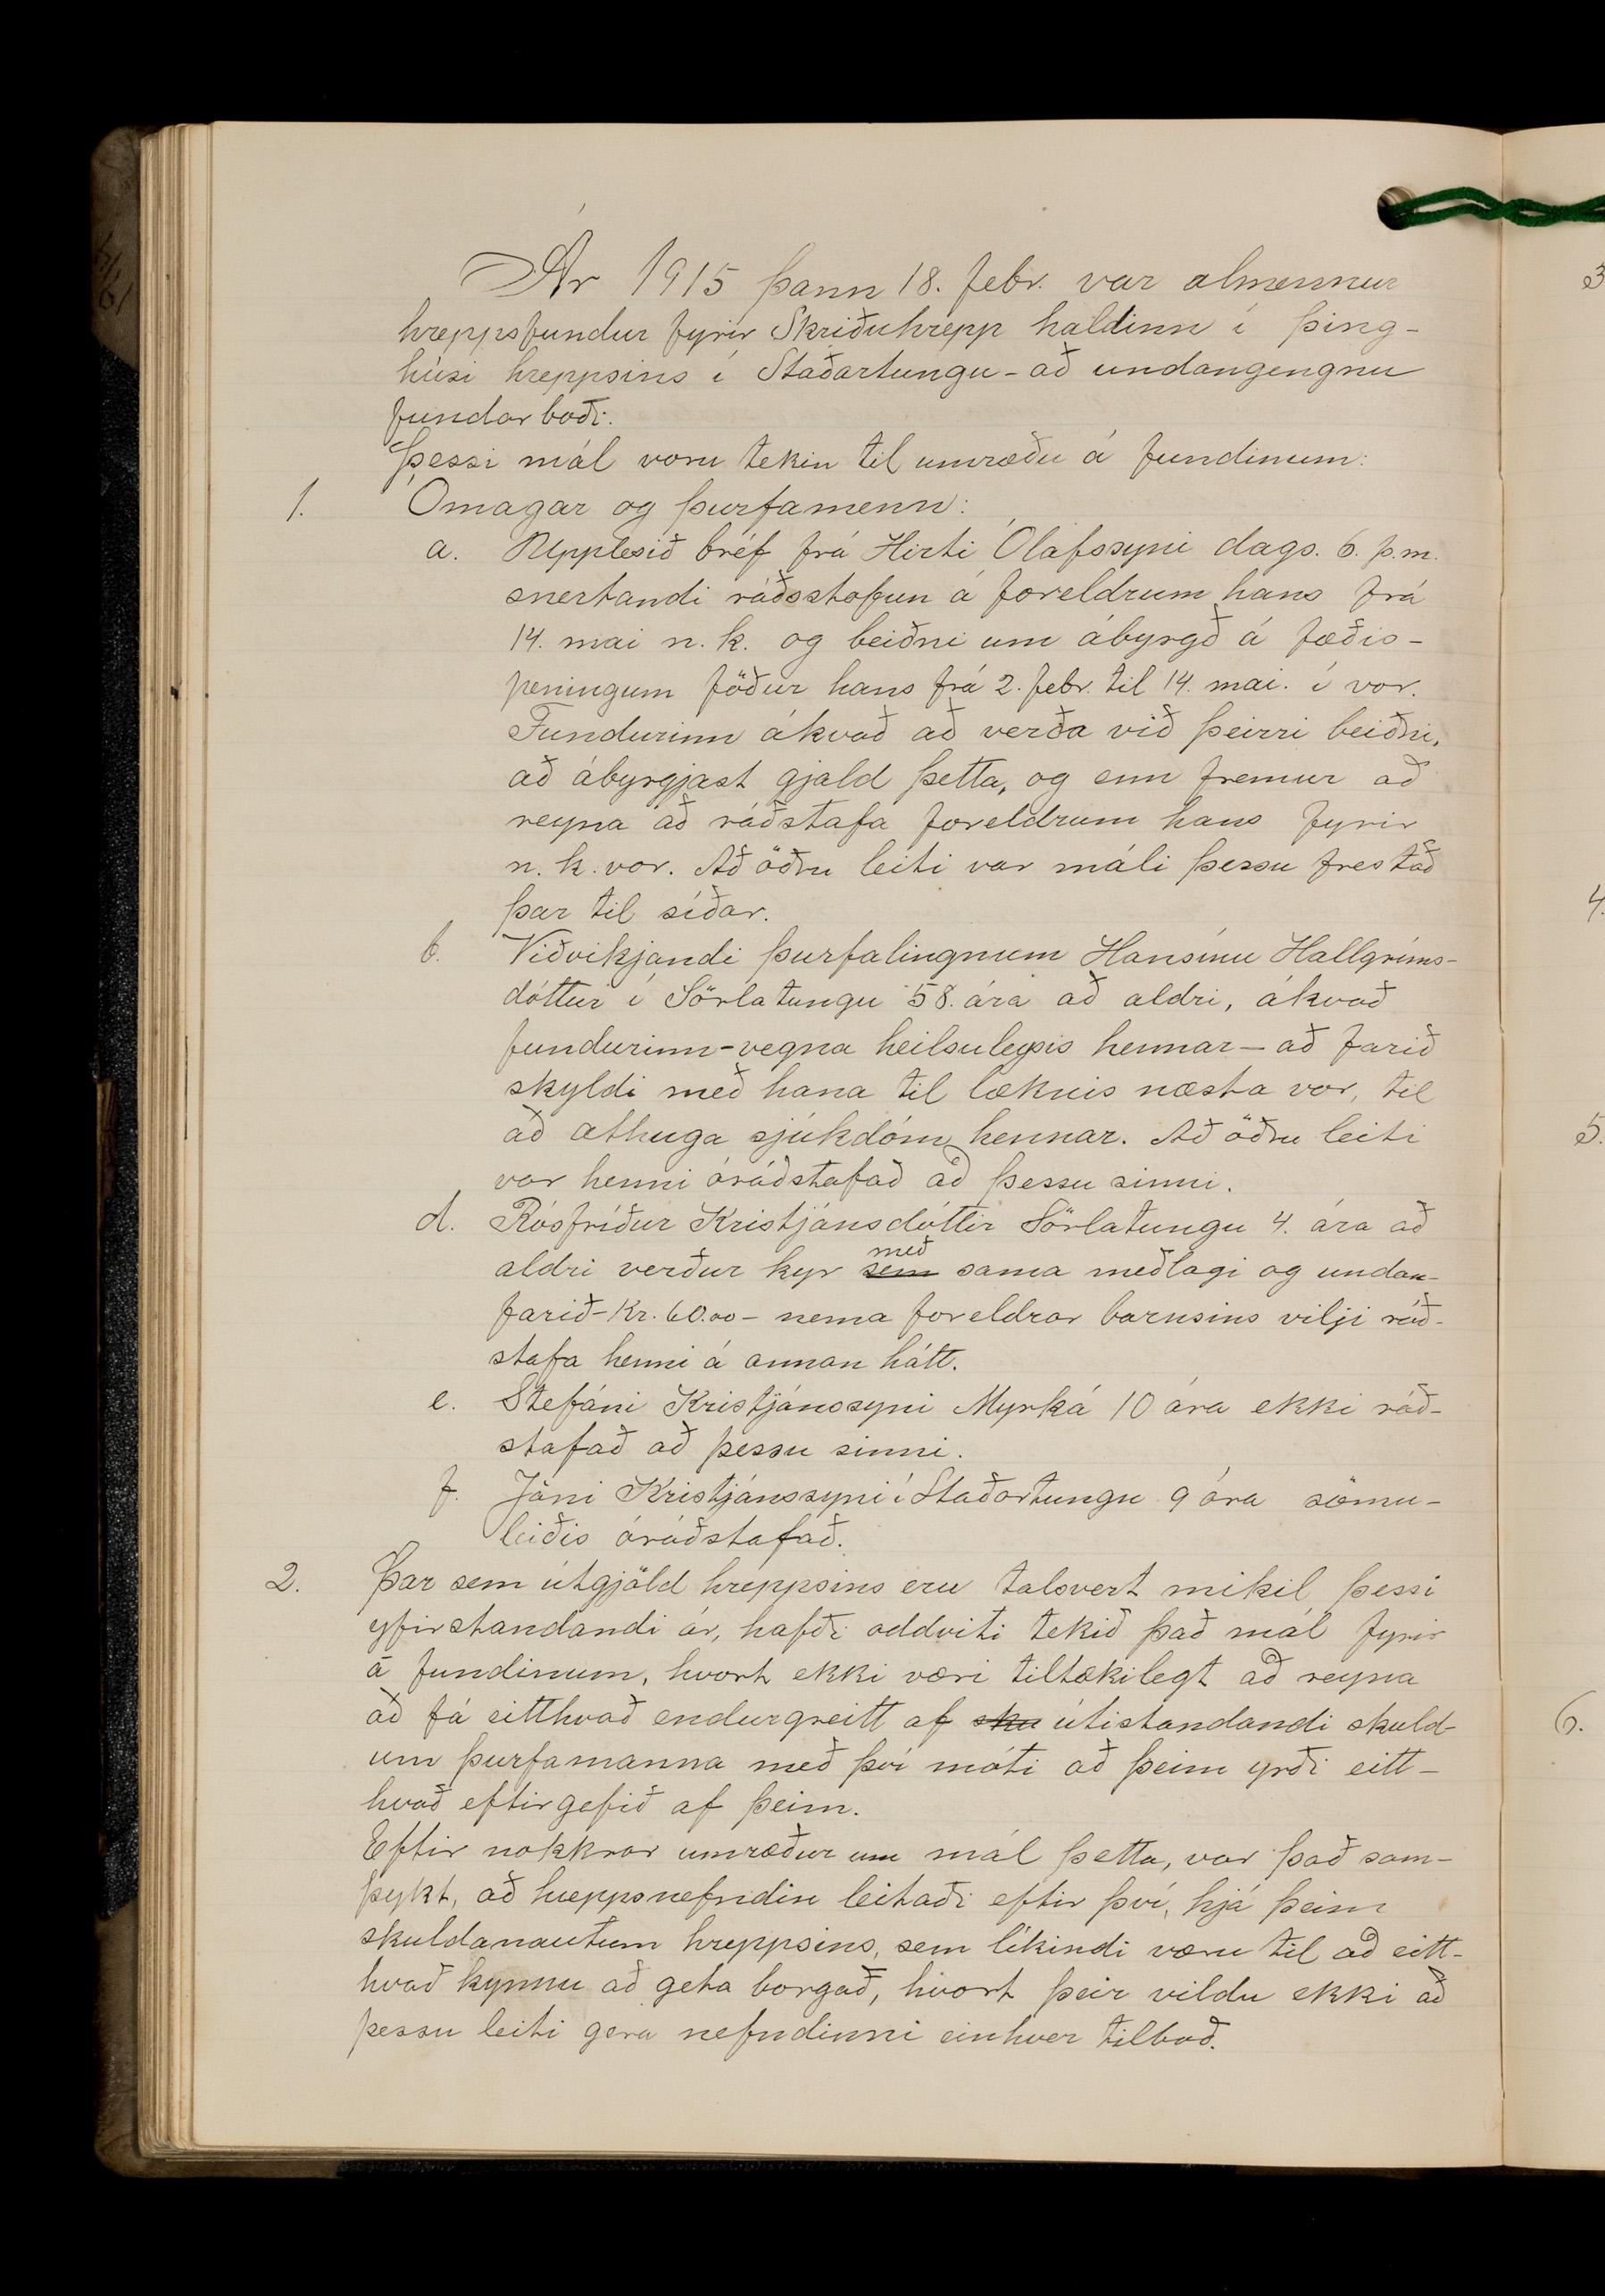 Ár 1915 þann 18. febr. var almennur
hreppsfundur fyrir Skriðuhrepp haldinn í þing-
húsi hreppsins í Staðartungu - að undangengnu
fundarboði.
Þessi mál voru tekin til umræðu á fundinum:
1. Ómagar og þurfamenn:
a. Upplesið bréf frá Hirti Ólafssyni dags. 6. þ.m.
snertandi ráðsstofun á foreldrum hans frá
14. mai n.k. og beiðni um ábyrgð á fæðis-
peningum föður hans frá 2. febr. til 14. mai. í vor.
Fundurinn ákvað að verða við þeirri beiðni,
að ábyrgjast gjald þetta, og enn fremur að
reyna að ráðstafa foreldrum hans fyrir
n.k. vor. Að öðru leiti var máli þessu frestað
þar til síðar.
b. Viðvikjandi þurfalingnum Hansínu Hallgríms-
dóttur í Sörlatungu 58. ára að aldri, ákvað
fundurinn - vegna heilsuleysis hennar - að farið
skyldi með hana til læknis næsta vor, til
að athuga sjúkdóm hennar. Að öðru leiti
var henni óráðstafað að þessu sinni.
d. Rósfríður Kristjánsdóttir Sörlatungu 4. ára að
með
aldri verður kyr sem sama meðlagi og undan-
farið - Kr. 60.00 - nema foreldrar barnsins vilji ráð-
stafa henni á annan hátt.
e. Stefáni Kristjánssyni Myrká 10 ára ekki ráð-
stafað að þessu sinni.
f. Jóni Kristjánssyni í Staðartungu 9 ára sömu-
leiðis óráðstafað.
2. Þar sem útgjöld hreppsins eru talsvert mikil þessi
yfirstandandi ár, hafði oddviti tekið það mál fyrir
á fundinum, hvort ekki væri tiltækilegt að reyna
að fá eitthvað endurgreitt af sku útistandandi skuld-
um þurfamanna með því móti að þeim yrði eitt-
hvað eftirgefið af þeim.
Eftir nokkrar umræður um mál þetta, var það sam-
þykt, að hreppsnefndin leitaði eftir því, hjá þeim
skuldanautum hreppsins, sem líkindi væru til að eitt-
hvað kynnu að geta borgað, hvort þeir vildu ekki að
þessu leiti gera nefndinni einhver tilboð.
3
4.
5.
6.